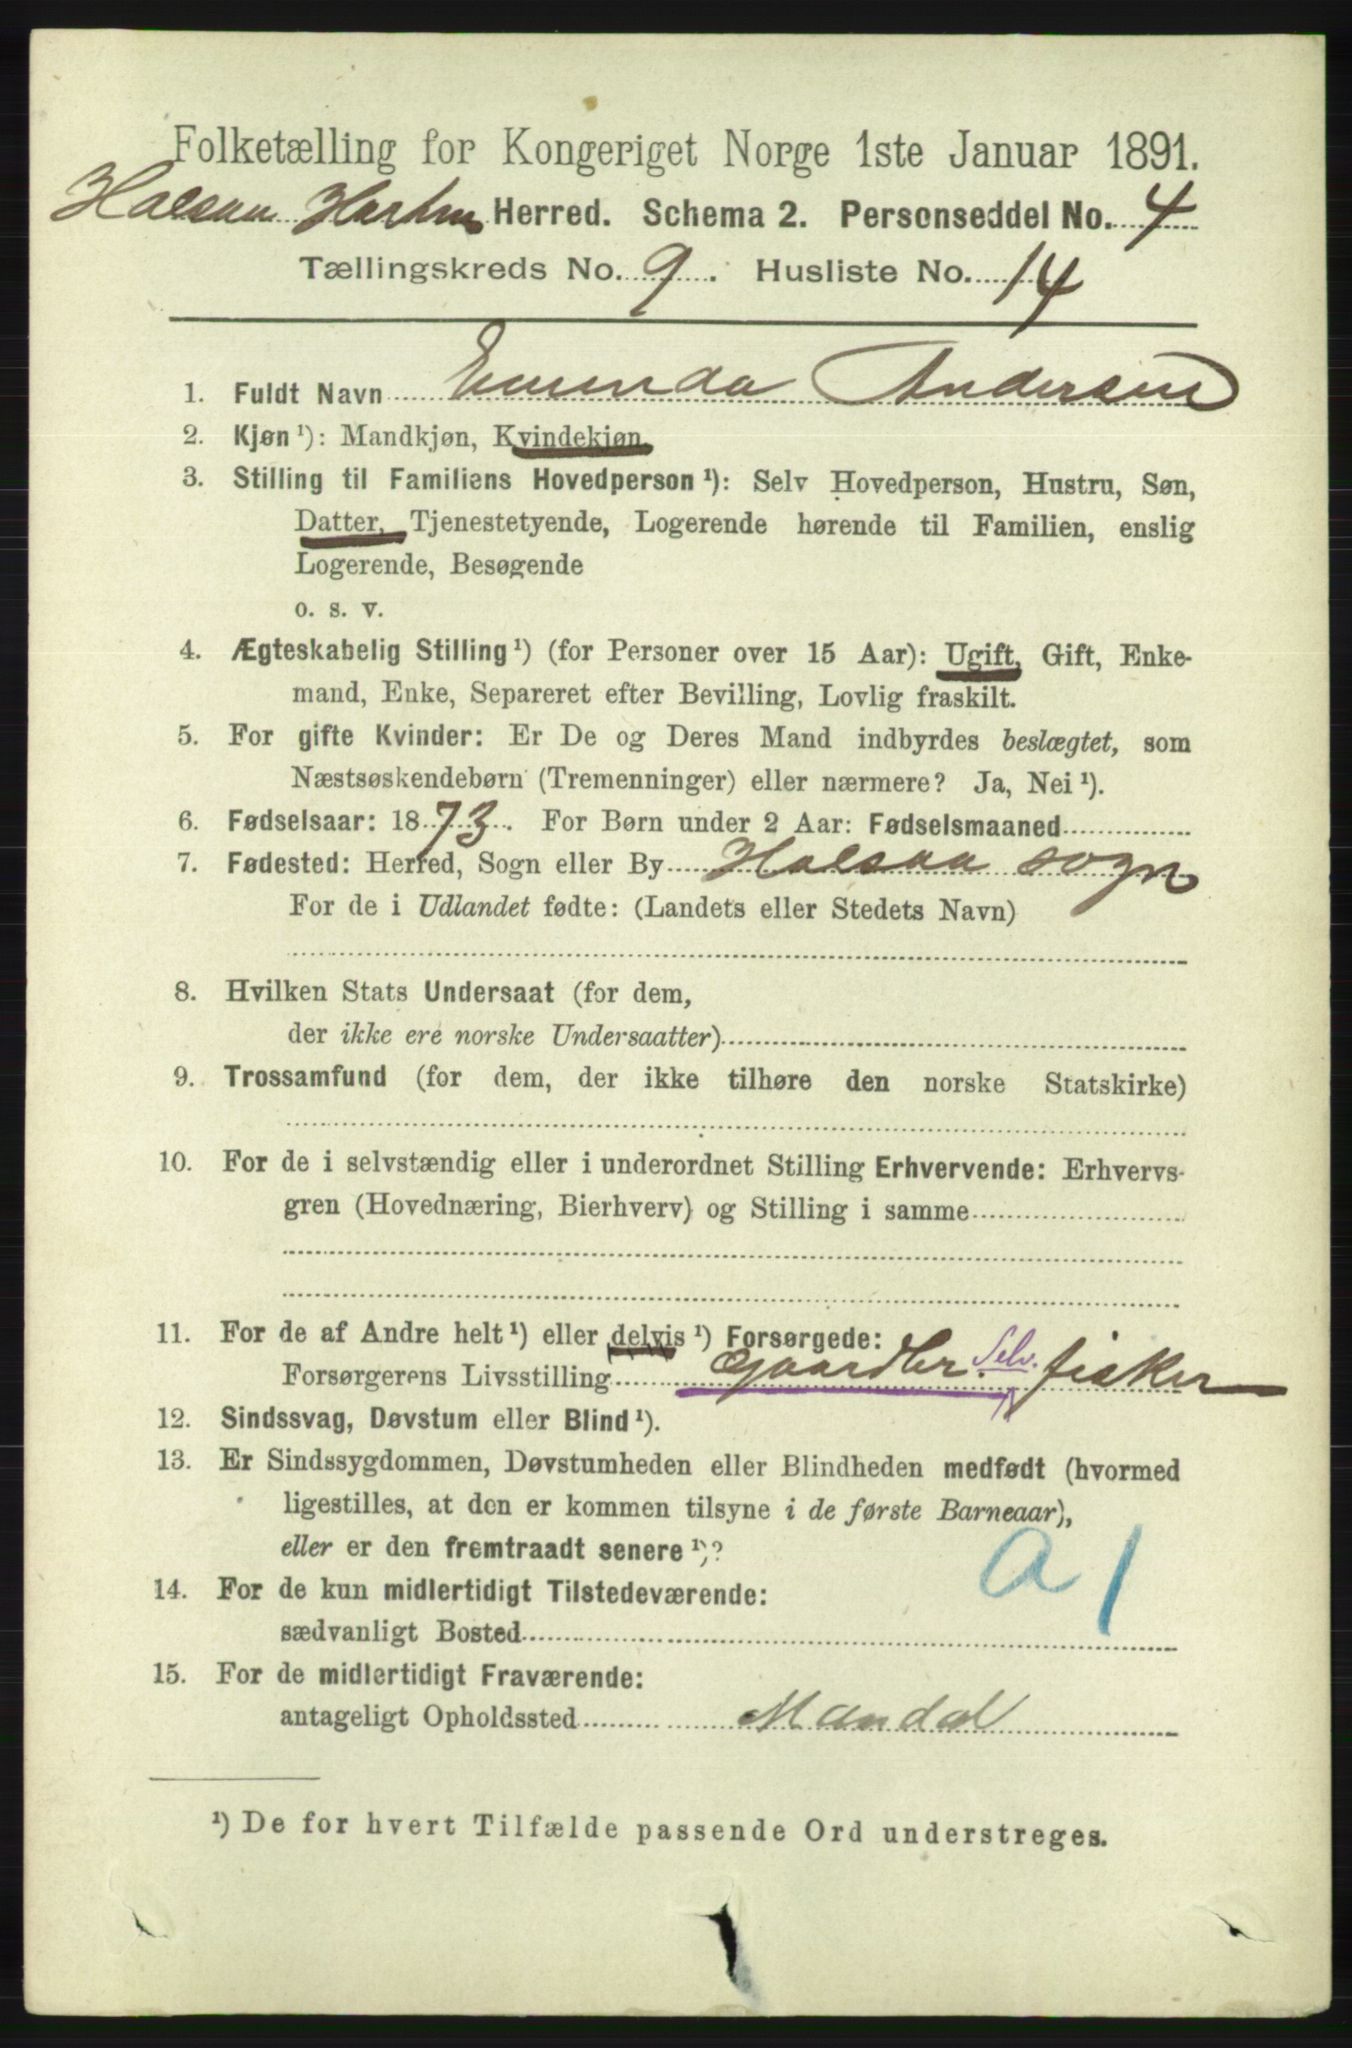 Folketælling for Kongeriget Norge 1ste Januar 1891.
Halsaa Herred. Schema 2. Personseddel No. 4
Tællingskreds No. 9. Husliste No. 14
1. Fuldt Navn Andersen
2. Kjøn ¹): Mandkjøn, Kvindekjøn
3. Stilling til Familiens Hovedperson ¹): Selv Hovedperson, Hustru, Søn,
Datter, Tjenestetyende, Logerende hørende til Familien, enslig
Logerende, Besøgende
o. s. v.
4. Ægteskabelig Stilling ¹) (for Personer over 15 Aar): Ugift, Gift, Enke-
mand, Enke, Separeret efter Bevilling, Lovlig fraskilt.
5. For gifte Kvinder: Er De og Deres Mand indbyrdes beslægtet, som
Næstsøskendebørn (Tremenninger) eller nærmere? Ja, Nei ¹).
6. Fødselsaar: 1873. For Børn under 2 Aar: Fødselsmaaned
7. Fødested: Herred, Sogn eller By Halsaa sogn
For de i Udlandet fødte: (Landets eller Stedets Navn)
8. Hvilken Stats Undersaat (for dem,
der ikke ere norske Undersaatter)
9. Trossamfund (for dem, der ikke tilhøre den norske Statskirke)
10. For de i selvstændig eller i underordnet Stilling Erhvervende: Erhvervs-
gren (Hovednæring, Bierhverv) og Stilling i samme
11. For de af Andre helt ¹) eller delvis ¹) Forsørgede:
Forsørgerens Livsstilling Gaardbr. Selv. fisker
12. Sindssvag, Døvstum eller Blind ¹).
13. Er Sindssygdommen, Døvstumheden eller Blindheden medfødt (hvormed
ligestilles, at den er kommen tilsyne i de første Barneaar),
eller er den fremtraadt senere ¹)?
a 1
14. For de kun midlertidigt Tilstedeværende:
sædvanligt Bosted
15. For de midlertidigt Fraværende:
antageligt Opholdssted Mandal
¹) De for hvert Tilfælde passende Ord understreges.